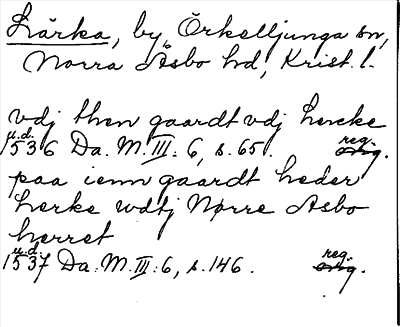 Lärka, by, Örkelljunga sn,
Norra Åsbo hd, Krist. l.
vdj then gaardt vdj hercke
u.d.
1536 Da. M. III: 6, s. 65. reg.
orig.
paa ienn gaardt heder
herke wdtj Nørre Asbo
herret
u.d.
1537 Da. M. III: 6, s. 146. reg.
orig.